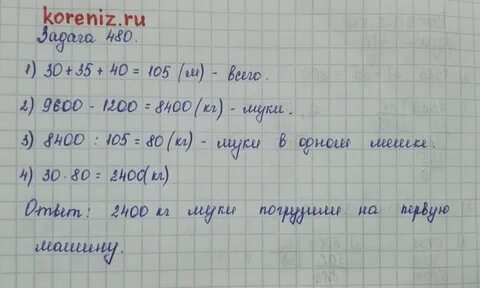 koreniz.ru
Задача 480.
1) 30 + 35 + 40 = 105 (м) - всего.
2) 9600 - 1200 = 8400 (кг) - муки.
3) 8400 : 105 = 80 (кг) - муки в одном мешке.
4) 30 · 80 = 2400 (кг)
Ответ: 2400 кг муки погрузили на первую
машину.